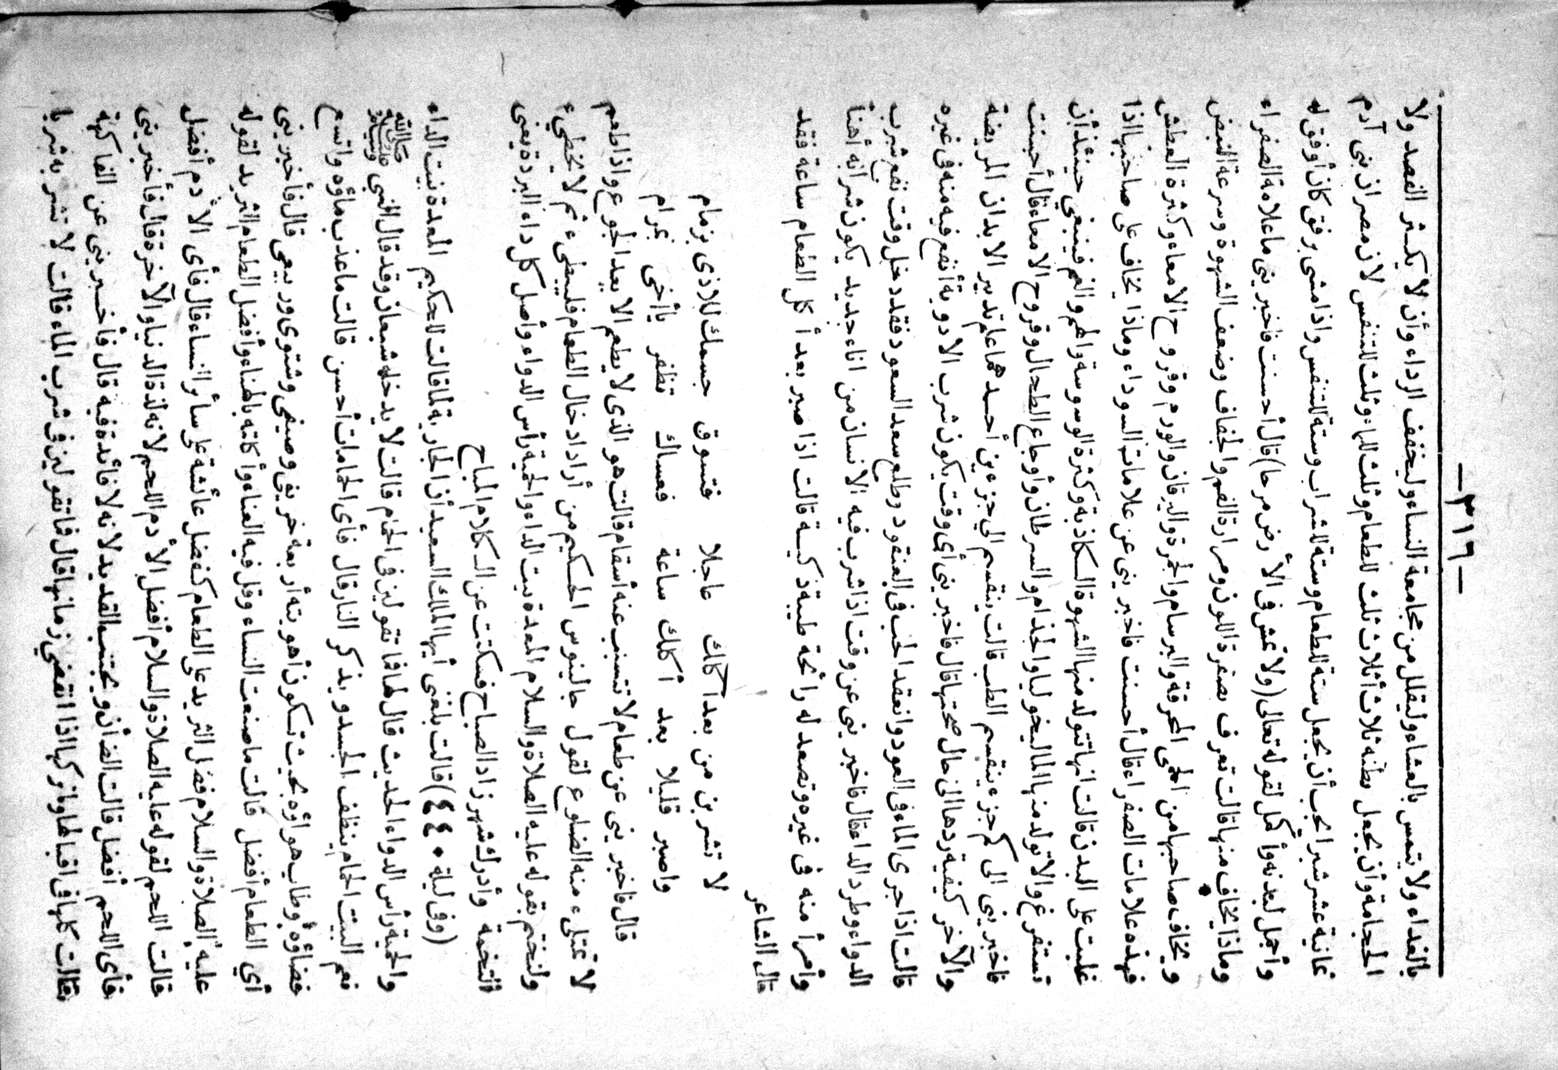 — ٣١٦ —
بالغداء ولا يتمس بالعشاء وليقلل من مجامعة النساء وليخفف الرداء وأن لا يكثر الفصد ولا
الحجامة وأن يجعل بطنه ثلاث أثلاث ثلث للطعام وثلث للماء وثلث للتنفس لأن مصران بنى آدم
ثمانية عشر شبرا يجب أن يجعل ستة للطعام وستة للشراب وستة للتنفس واذا مشى برفق كان أوفق له
وأجمل لبدنه وأكمل لقوله تعالى (ولا تمش فى الأرض مرحا) قال أحسنت فاخبرينى ما علامة الصفراء
وماذا يخاف منها قالت تعرف بصفرة اللون ومرارة الفم والجفاف وضعف الشهوة وسرعة النبض
ويخاف صاحبها من الحمى المحرقة والبرسام والجمرة واليرقان والورم وقروح الامعاء وكثرة العطش
فهذه علامات الصفراء قال أحسنت فاخبرينى عن علامات السوداء وماذا يخاف على صاحبها اذا
غلبت على البدن قالت انها تتولد منها الشهوة الكاذبة وكثرة الوسوسة والهم والغم فينبغي حينئذ أن
تستفرغ والا تولد منها الماليخوليا والجذام والسرطان وأوجاع الطحال وقروح الامعاء قال أحسنت
فاخبرينى الى كم جزء ينقسم الطب قالت ينقسم الى جزءين أحدهما علم تدبير الابدان المريضة
والآخر كيفية ردها الى حال صحتها قال فاخبرينى أى وقت يكون شرب الادوية أنفع فيه منه فى غيره
قالت اذا جرى الماء فى العود وانعقد الحب فى العنقود وطلع سعد السعود فقد دخل وقت نفع شرب
الدواء وطرد الداء قال فاخبرينى عن وقت اذا شرب فيه الانسان من اناء جديد يكون شرابه أهنأ
وأمرأ منه فى غيره وتصعد له رائحة طيبة ذكية قالت اذا صبر بعد أكل الطعام ساعة فقد
قال الشاعر
لا تشربن من بعد أكلك عاجلا فتسوق جسمك للاذى بزمام
واصبر قليلا بعد أكلك ساعة فعساك تظفر ياأخى بمرام
قال فاخبرينى عن طعام لا تتسبب عنه أسقام قالت هو الذى لا يطعم الا بعد الجوع واذا طعم
لا تمتلىء منه الضلوع لقول جالينوس الحكيم من أراد ادخال الطعام فليبطىء ثم لا يخطىء
ولنختم بقوله عليه الصلاة والسلام المعدة بيت الداء والحمية رأس الدواء وأصل كل داء البردة يعنى
التخمة وأدرك شهرزاد الصباح فسكتت عن الكلام المباح
(وفى ليلة ٤٤٠) قالت بلغنى أيها الملك السعيد أن الجارية لما قالت للحكيم المعدة بيت الداء
والحمية رأس الدواء الحديث قال لها فما تقولين فى الحمام قالت لا يدخله شبعان وقد قال النبى ﷺ
نعم البيت الحمام ينظف الجسد ويذكر النار قال فأى الحمامات أحسن قالت ما عذب ماؤه واتسع
فضاؤه وطاب هواؤه بحيث تكون أهويته أربعة خريفى وصيفى وشتوى وربيعى قال فأخبرينى
أي الطعام أفضل قالت ما صنعت النساء وقل فيه العناء وأكلته بالهناء وأفضل الطعام الثريد لقوله
عليه الصلاة والسلام فضل الثريد على الطعام كفضل عائشة على سائر النساء قال فأى الأدم أفضل
قالت اللحم لقوله عليه الصلاة والسلام أفضل الأدم اللحم لانه لذة الدنيا والآخرة قال فأخبرينى
فأى اللحم أفضل قالت الضأن ويجتنب القديد لانه لا فائدة فيه قال فأخبرينى عن الفاكهة
فقالت كلها فى اقبالها واتركها اذا انقضى زمانها قال فما تقولين فى شرب الماء قالت لا تشربه شربا